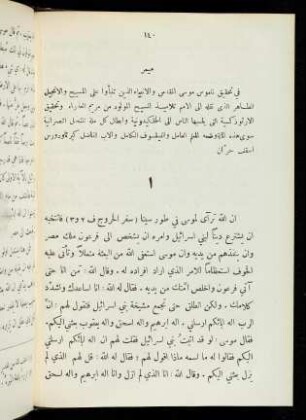 ١٤٠
ميمر
في تحقيق ناموس موسى المقدس والانبياء الذين تنبأوا على المسيح والانجيل
الطاهر الذي نقله الى الامم تلاميذ المسيح المولود من مريم العذراء وتحقيق
الارثوذكسية التي ينسبها الناس الى الخلكيدونية وابطال كل ملة تنتحل النصرانية
سوى هذه الملة وضعه المعلم العامل والفيلسوف الكامل والاب الفاضل كير ثاودورس
اسقف حران
١
ان الله تراءى لموسى في طور سينا (سفر الخروج ف ٢ و٣) فانتخبه
ان يشترع ديناً لبني اسرائيل وامره ان يشخص الى فرعون ملك مصر
وان ينقذهم من يديه وان موسى استعفى الله من البعثة متملاً وتأبى عليه
لخوف استعظاماً للامر الذي اراد افراده له. وقال الله: من انا حتى
آتي فرعون واخلص امتك من يديه. فقال له الله: انا ساعضدك واشدّد
كلامك. ولكن انطلق حتى تجمع مشيخة بني اسرائيل فتقول لهم: ان
الرب اله ابائكم ارسلني. اله ابرهيم واله اسحق واله يعقوب بعثني اليكم.
فقال موسى: لو قد اتيت بني اسرائيل فقلت لهم ان اله ابائكم ارسلني
اليكم فقالوا له ما اسمه ماذا اقول لهم؟ فقال له الله: قل لهم الذي لم
يزل بعثني اليكم. وقال الله: انا الذي لم ازل وانا اله ابرهيم واله اسحق